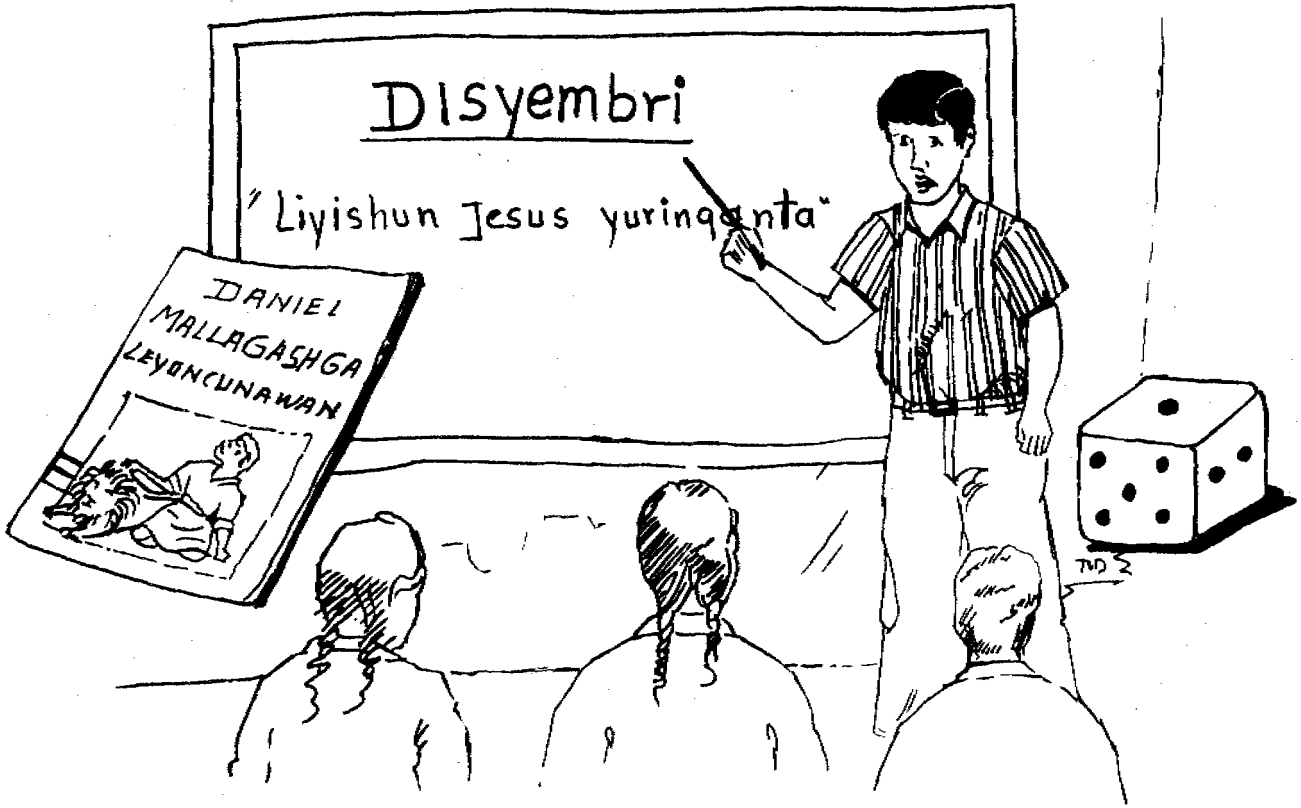 DISyembri
"Liyishun Jesus yurinqanta"
DANIEL
MALLAGASHGA
LEYONCUNAWAN